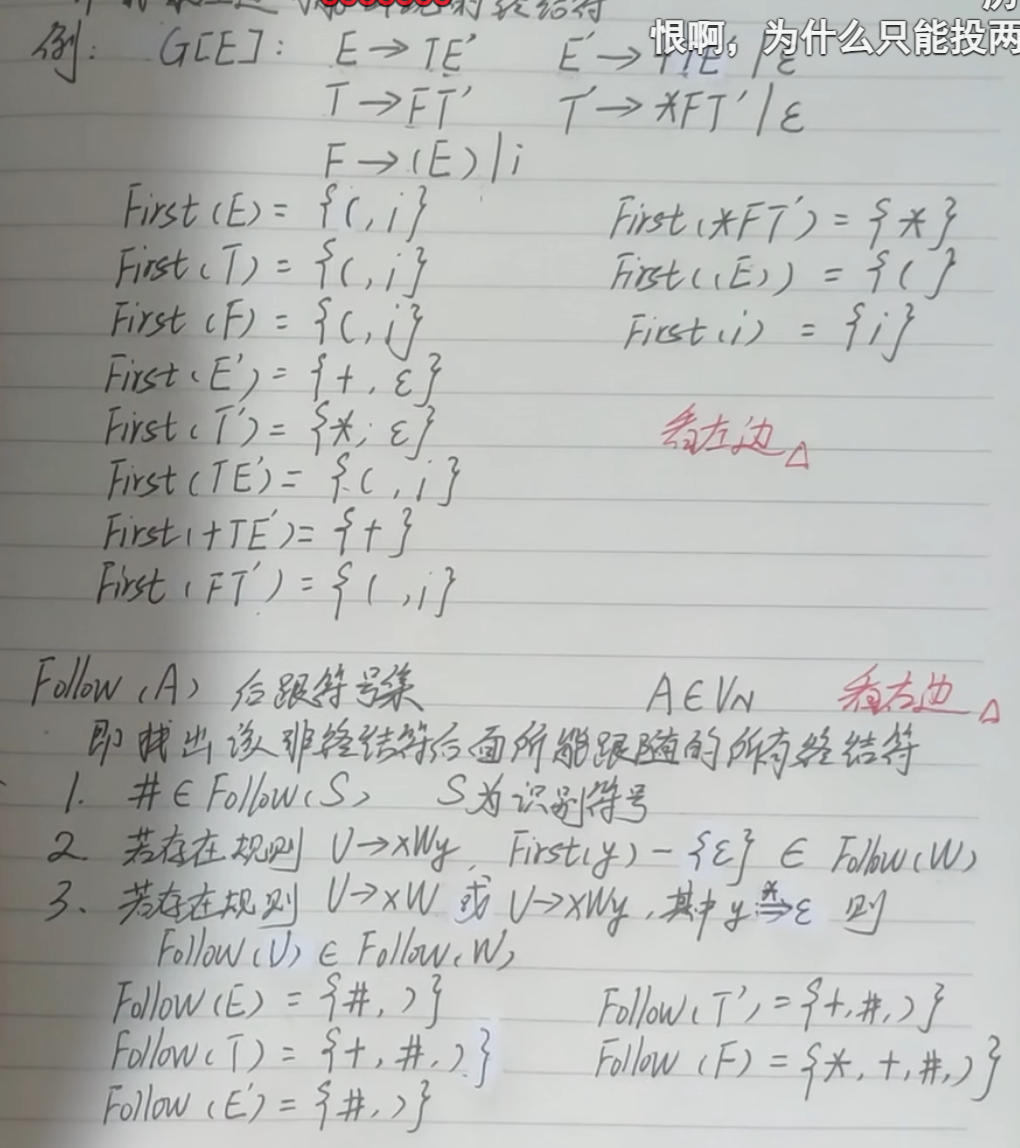 终结符
恨啊，为什么只能投两
例： G[E]： E→TE′ E′→+TE′|ε
T→FT′ T′→*FT′|ε
F→(E)|i
First(E)={(,i} First(*FT′)={*}
First(T)={(,i} First((E))={(}
First(F)={(,i} First(i)={i}
First(E′)={+,ε}
First(T′)={*,ε} 看左边△
First(TE′)={(,i}
First(+TE′)={+}
First(FT′)={(,i}
Follow(A) 后跟符号集 A∈VN 看右边△
即找出该非终结符后面所能跟随的所有终结符
1. #∈Follow(S) S为识别符号
2. 若存在规则 U→xWy, First(y)-{ε}∈Follow(W)
3. 若存在规则 U→xW 或 U→xWy,其中 y*⇒ε 则
Follow(U)∈Follow(W)
Follow(E)={#,)} Follow(T′)={+,#,)}
Follow(T)={+,#,)} Follow(F)={*,+,#,)}
Follow(E′)={#,)}